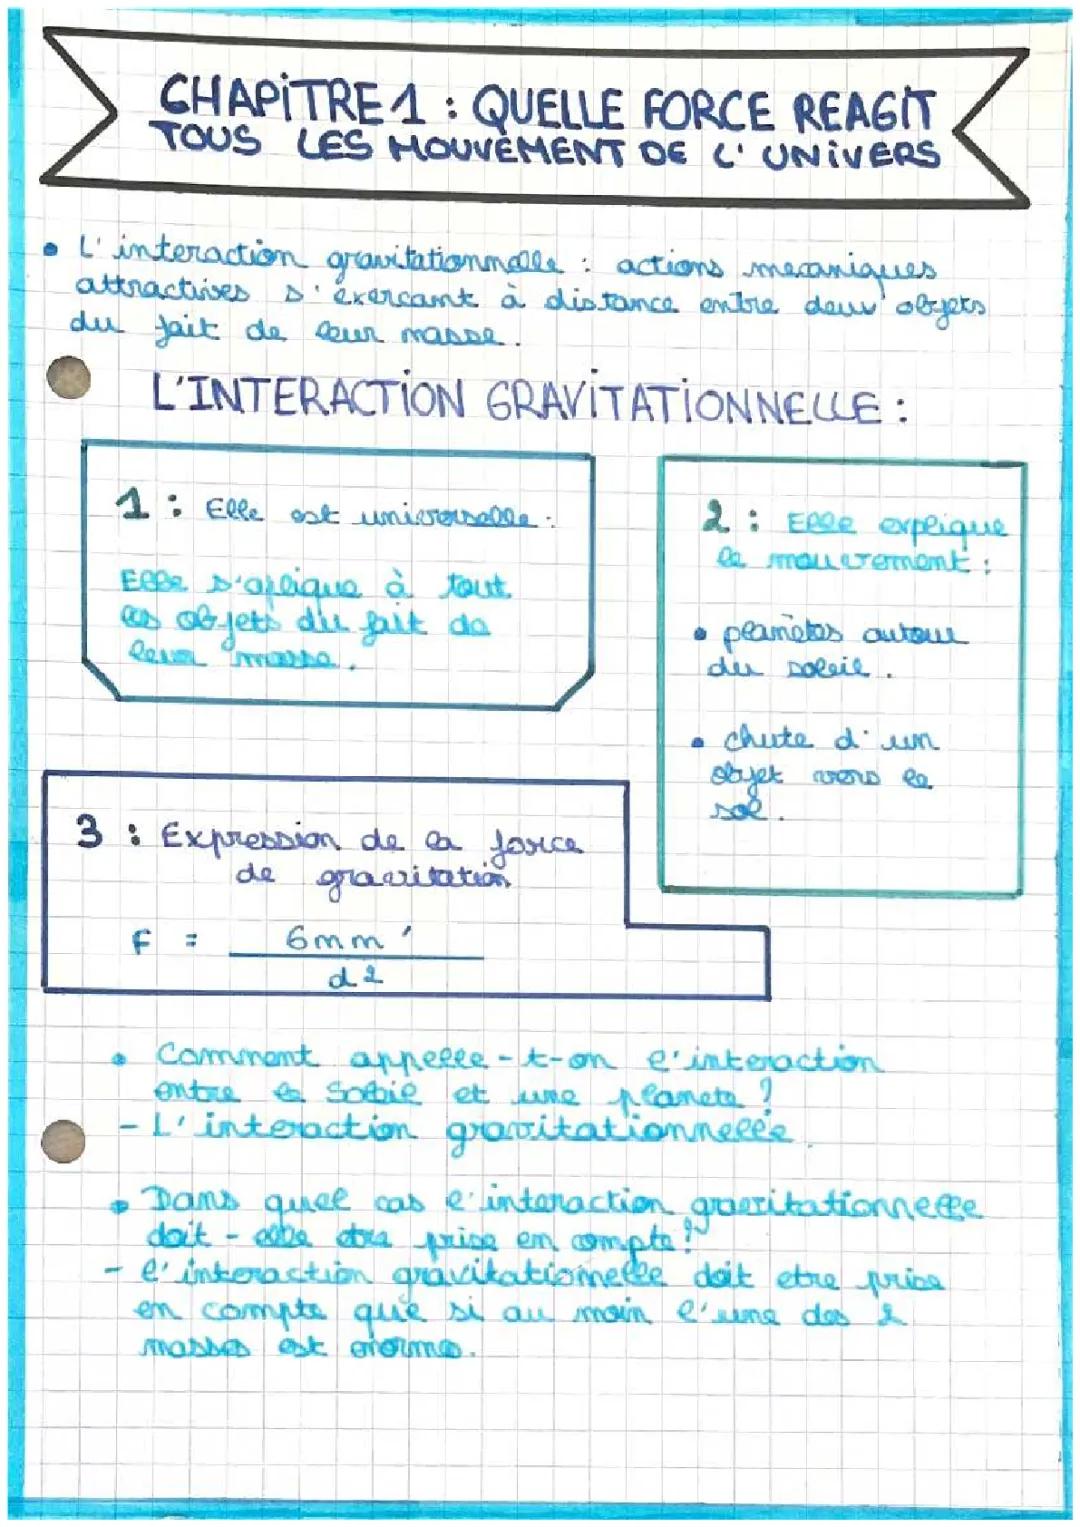 CHAPITRE 1 : QUELLE FORCE REAGIT
TOUS LES MOUVEMENT DE L'UNIVERS
• L'interaction gravitationnalle : actions mecaniques
attractives s'éxercant à distance entre deux objets
du fait de leur masse.
L'INTERACTION GRAVITATIONNELLE :
1 : Elle est universelle :
Elle s'aplique à tout
les objets du fait de
leur masse.
2 : Elle explique
le mouvement :
• planetes autour
du soleil.
• chute d'un
objet vers le
sol.
3 : Expression de la force
de gravitation
F = 6mm'
d2
• Comment appelle-t-on l'interaction
entre le Soleil et une planete ?
- L'interaction gravitationnelle.
• Dans quel cas l'interaction gravitationnelle
doit-elle etre prise en compte ?
- l'interaction gravitationnelle doit etre prise
en compte que si au moin l'une des 2
masses est enorme.